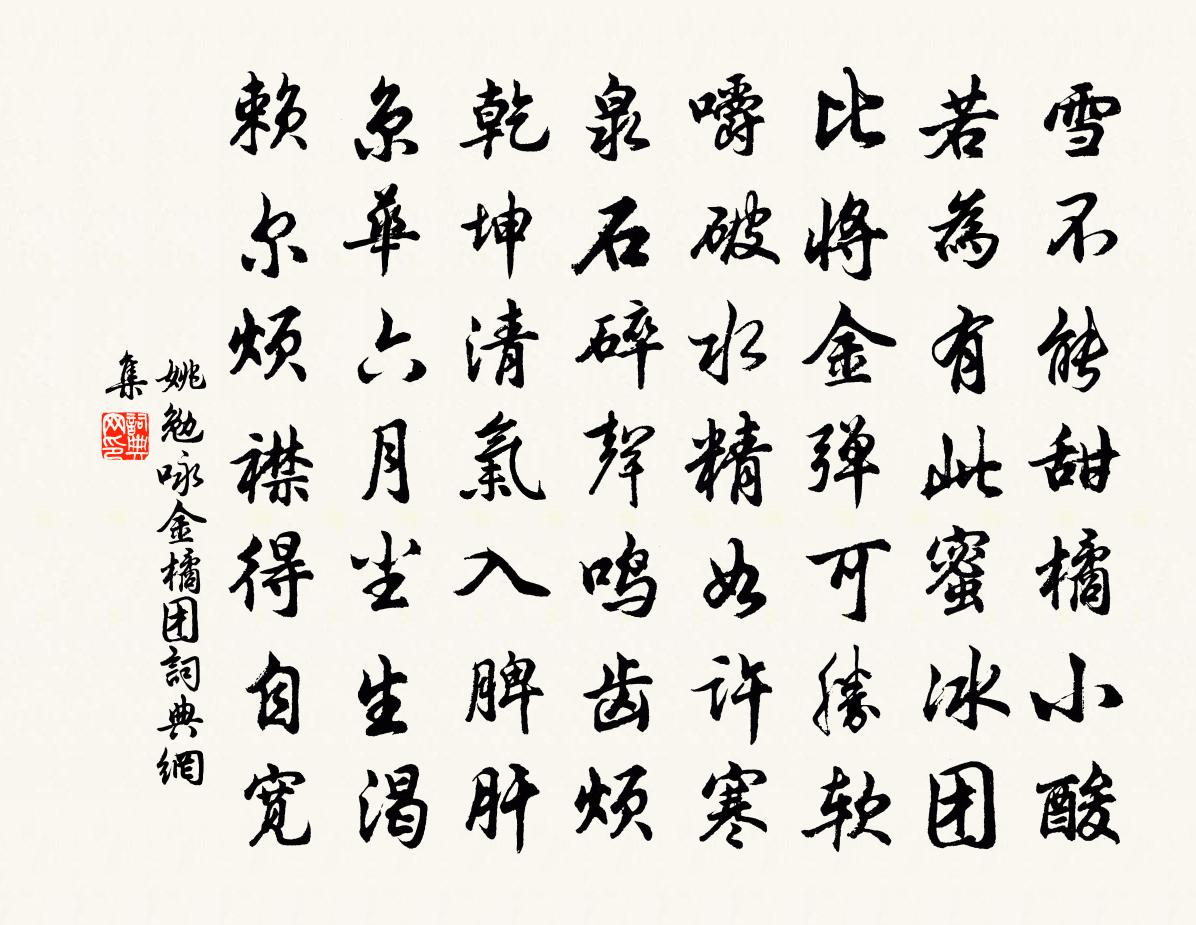 雪不能甜橘小酸
若為有此蜜冰团
比將金弹可勝软
嚼破水精如许寒
泉石碎聲鳴齿烦
乾坤清氣入脾肝
京華六月尘生渴
赖尔烦襟得自宽
姚勉咏金橘团詞典網
集
詞典
网印